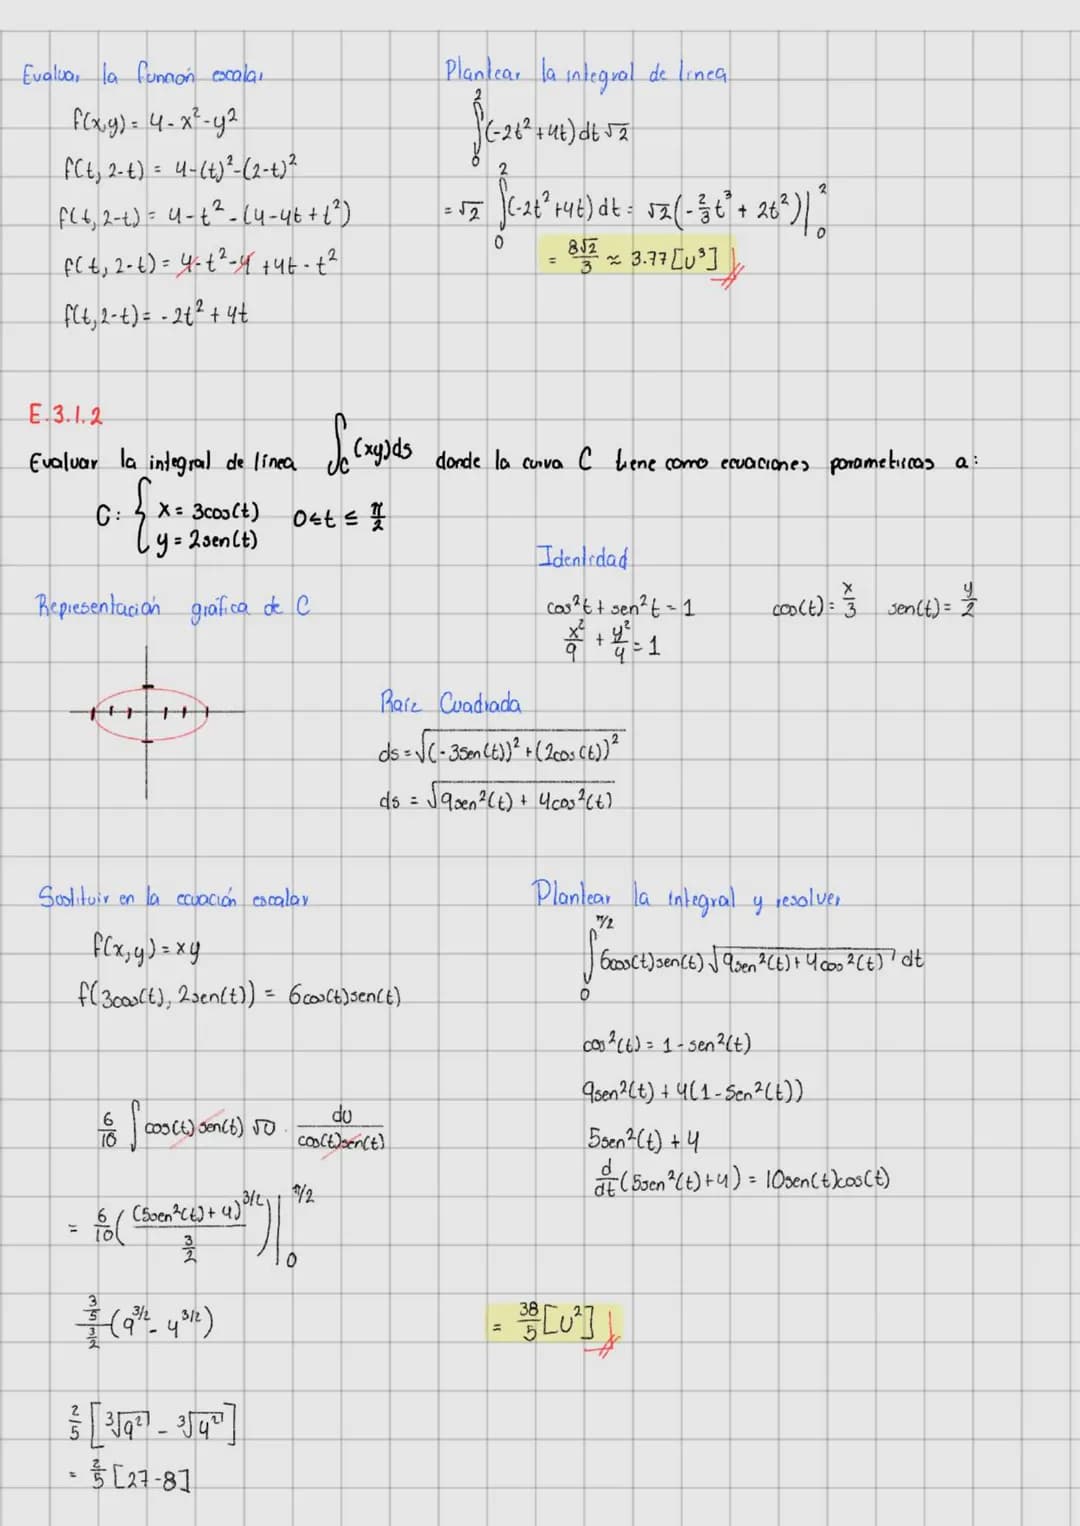 Evaluar la función escalar
f(x,y) = 4 - x² - y²
f(t, 2-t) = 4-(t)²-(2-t)²
f(t, 2-t) = 4-t²-(4-4t+t²)
f(t, 2-t) = 4-t²-4+4t-t²
f(t, 2-t) = -2t²+4t
Plantear la integral de línea
∫₀² (-2t²+4t) dt √2
= √2 ∫₀² (-2t²+4t) dt = √2 (-2/3 t³ + 2t²) |₀²
= 8√2/3 ≈ 3.77 [U³]
E.3.1.2
Evaluar la integral de línea ∫_C (xy)ds donde la curva C tiene como ecuaciones parametricas a:
C: { x = 3cos(t) 0≤t≤ π/2
y = 2sen(t)
Identidad
Representación gráfica de C
cos²t + sen²t = 1 cos(t) = x/3 sen(t) = y/2
x²/9 + y²/4 = 1
Raíz Cuadrada
ds = √((-3sen(t))² + (2cos(t))²)
ds = √(9sen²(t) + 4cos²(t))
Sustituir en la ecuación escalar
f(x,y) = xy
f(3cos(t), 2sen(t)) = 6cos(t)sen(t)
Plantear la integral y resolver
∫₀^(π/2) 6cos(t)sen(t) √(9sen²(t)+4cos²(t)) dt
cos²(t) = 1 - sen²(t)
9sen²(t) + 4(1-Sen²(t))
5sen²(t) + 4
d/dt (5sen²(t)+4) = 10sen(t)cos(t)
6/10 ∫ cos(t)sen(t) √U · du/cos(t)sen(t)
= 6/10 ( (5sen²(t)+4)^(3/2) / (3/2) ) |₀^(π/2)
(3/5)/(3/2) (9^(3/2) - 4^(3/2))
2/5 [³√9² - ³√4²]
= 2/5 [27-8]
= 38/5 [U²]